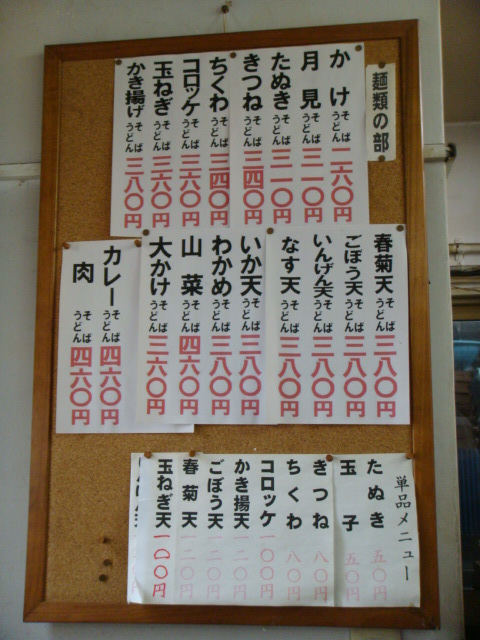 麺類の部
かけ そば うどん 二六〇円
月見 そば うどん 三一〇円
たぬき そば うどん 三一〇円
きつね そば うどん 三四〇円
ちくわ そば うどん 三四〇円
コロッケ そば うどん 三六〇円
玉ねぎ そば うどん 三六〇円
かき揚げ そば うどん 三八〇円
春菊天 そば うどん 三八〇円
ごぼう天 そば うどん 三八〇円
いんげん天 そば うどん 三八〇円
なす天 そば うどん 三八〇円
いか天 そば うどん 三八〇円
わかめ そば うどん 三八〇円
山菜 そば うどん 四六〇円
大かけ そば うどん 三六〇円
カレー そば うどん 四六〇円
肉 そば うどん 四六〇円
単品メニュー
たぬき 五〇円
玉子 五〇円
きつね 八〇円
ちくわ 八〇円
コロッケ 一〇〇円
かき揚天 一二〇円
ごぼう天 一二〇円
春菊天 一二〇円
玉ねぎ天 一〇〇円